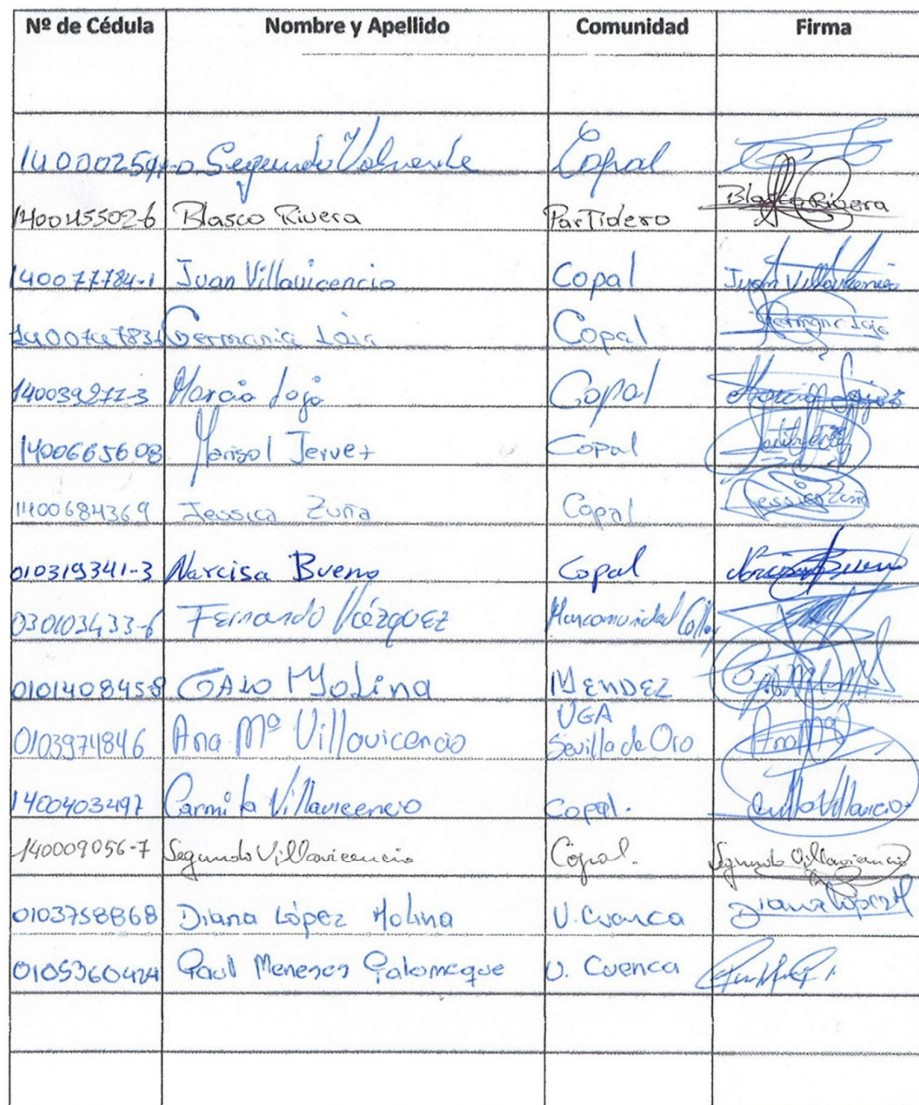 Nº de Cédula Nombre y Apellido Comunidad Firma
Segundo Valverde Copal
140045502-6 Blasco Rivera Partidero Blasco Rivera
140077784-1 Juan Villavicencio Copal Juan Villavicencio
Germania Loja Copal Germania Loja
Marcia Loja Copal Marcia Loja
1400665608 Marisol Jerves Copal
1400684369 Jessica Zuña Copal Jessica Zuña
010319341-3 Narcisa Bueno Copal Narcisa Bueno
030103433-6 Fernando Vázquez Mancomunidad
0101408458 GALO Molina MENDEZ
0103974846 Ana Mª Villavicencio UGA
Sevilla de Oro Ana Mª
1400403497 Carmita Villavicencio Copal.
140009056-7 Segundo Villavicencio Copal. Segundo Villavicencio
0103758868 Diana López Molina U. Cuenca Diana López M
0105360424 Paul Meneses Palomeque U. Cuenca